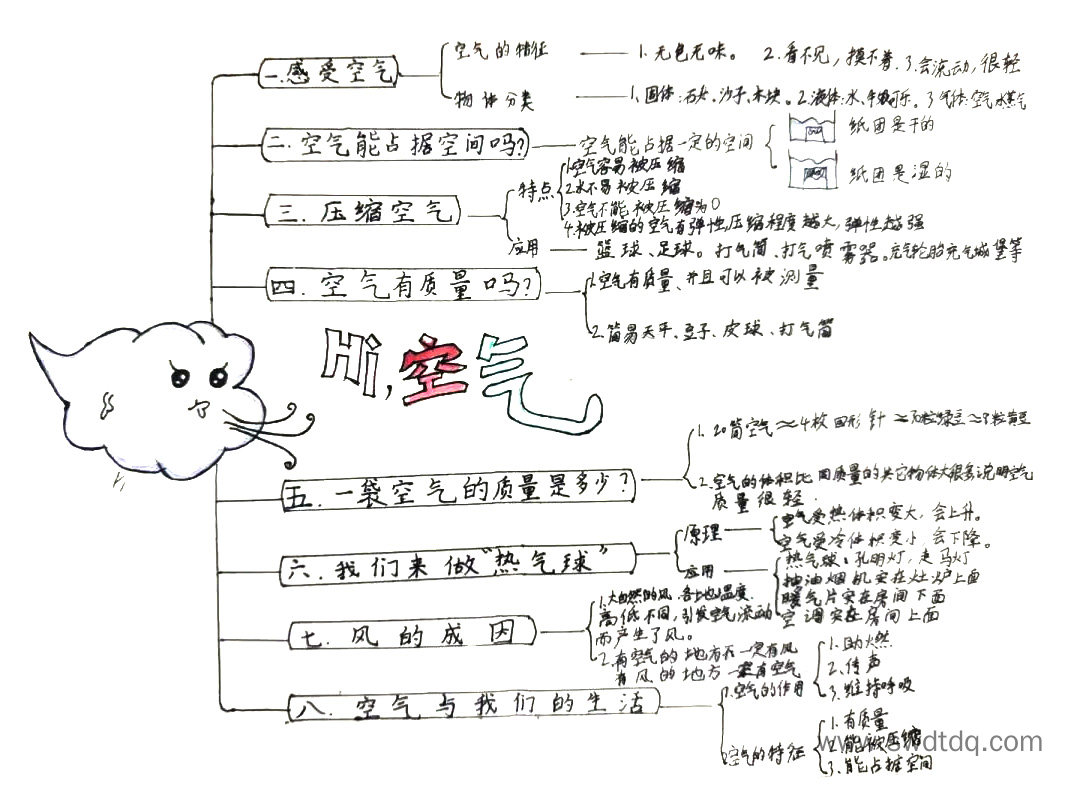 一.感受空气
空气的特征
1.无色无味。 2.看不见,摸不着.3.会流动,很轻
物体分类
1.固体:石头、沙子、木块。2.液体:水、牛奶、可乐。3.气体:空气、水蒸气
二.空气能占据空间吗?
空气能占据一定的空间
纸团是干的
纸团是湿的
三.压缩空气
特点
1.空气容易被压缩
2.水不易被压缩
3.空气不能被压缩为0
4.被压缩的空气有弹性,压缩程度越大,弹性越强
应用
篮球、足球。打气筒、打气喷雾器。充气轮胎充气城堡等
四.空气有质量吗?
1.空气有质量、并且可以被测量
2.简易天平、豆子、皮球、打气筒
Hi,空气
五.一袋空气的质量是多少?
1.20筒空气≈4枚回形针≈10粒绿豆≈3粒黄豆
2.空气的体积比同质量的其它物体大很多,说明空气
质量很轻.
六.我们来做“热气球”
原理
空气受热体积变大,会上升。
空气受冷体积变小,会下降。
应用
热气球、孔明灯,走马灯
抽油烟机安在灶炉上面
暖气片安在房间下面
空调安在房间上面
七.风的成因
1.大自然的风各地温度
高低不同,引发空气流动
而产生了风。
2.有空气的地方不一定有风
有风的地方一定有空气
八.空气与我们的生活
1.空气的作用
1.助燃
2.传声
3.维持呼吸
2.空气的特征
1.有质量
2.能被压缩
3.能占据空间
www.swdtdq.com